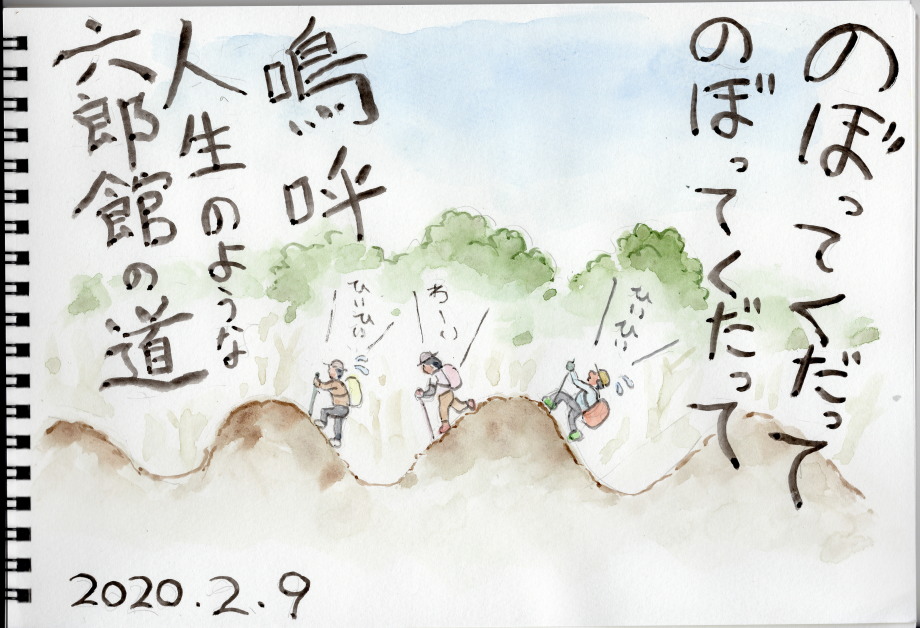 のぼってくだって
のぼってくだって
ひいひい
わーい
ひいひい
嗚呼
人生のような
六郎館の道
2020.2.9